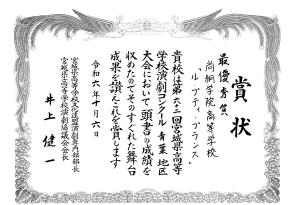 賞状
最優秀賞
尚絅学院高等学校
「ル・プティ・プランス」
貴校は第六十二回宮城県高等
学校演劇コンクール青葉地区
大会において頭書の成績を
収めたのでそのすぐれた舞台
成果を讃えこれを賞します
令和六年十月六日
宮城県高等学校文化連盟演劇専門部部長
宮城県高等学校演劇協議会会長
井上健一